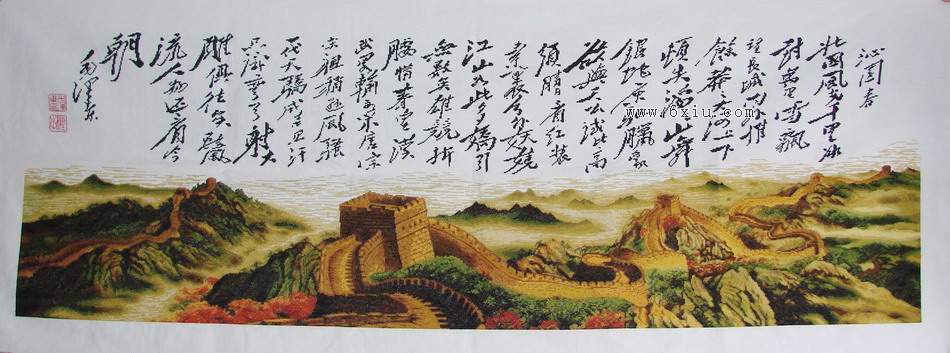 沁园春
北国风光千里冰
封万里雪飘
望长城内外惟
馀莽莽大河上下
顿失滔滔山舞
银蛇原驰腊象
欲与天公试比高
须晴日看红装
素裹分外妖娆
江山如此多娇引
无数英雄竞折
腰惜秦皇汉
武略输文采唐宗
宋祖稍逊风骚
一代天骄成吉思汗
只识弯弓射大
雕俱往矣数风
流人物还看今
朝
毛泽东
www.6xiu.com